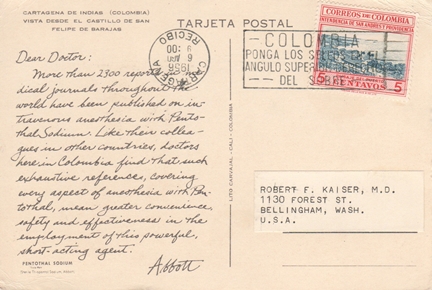 CARTAGENA DE INDIAS (COLOMBIA)
VISTA DESDE EL CASTILLO DE SAN
FELIPE DE BARAJAS
TARJETA POSTAL
Dear Doctor:
More than 2300 reports
dical journals throughout the
world have been published on in-
travenous anesthesia with Pento-
thal Sodium. Like their collea-
gues in other countries, doctors
here in Colombia find that such
exhaustive reference, covering
every aspect of anesthesia with Pen-
tothal, mean greater convenience,
safety and effectiveness in the
employment of this powerful,
short-acting agent.
Abbott
PENTOTHAL SODIUM
LITO CARVAJAL - CALI - COLOMBIA
CARTAGENA
1956
RECIBO
COLOMBIA
PONGA LOS SELLOS EN EL
ANGULO SUPERIOR DERECHO
DEL SOBRE
CORREOS DE COLOMBIA
INTENDENCIA DE SAN ANDRES Y PROVIDENCIA
5 CENTAVOS 5
ROBERT F. KAISER, M.D.
1130 FOREST ST.
BELLINGHAM, WASH.
U.S.A.